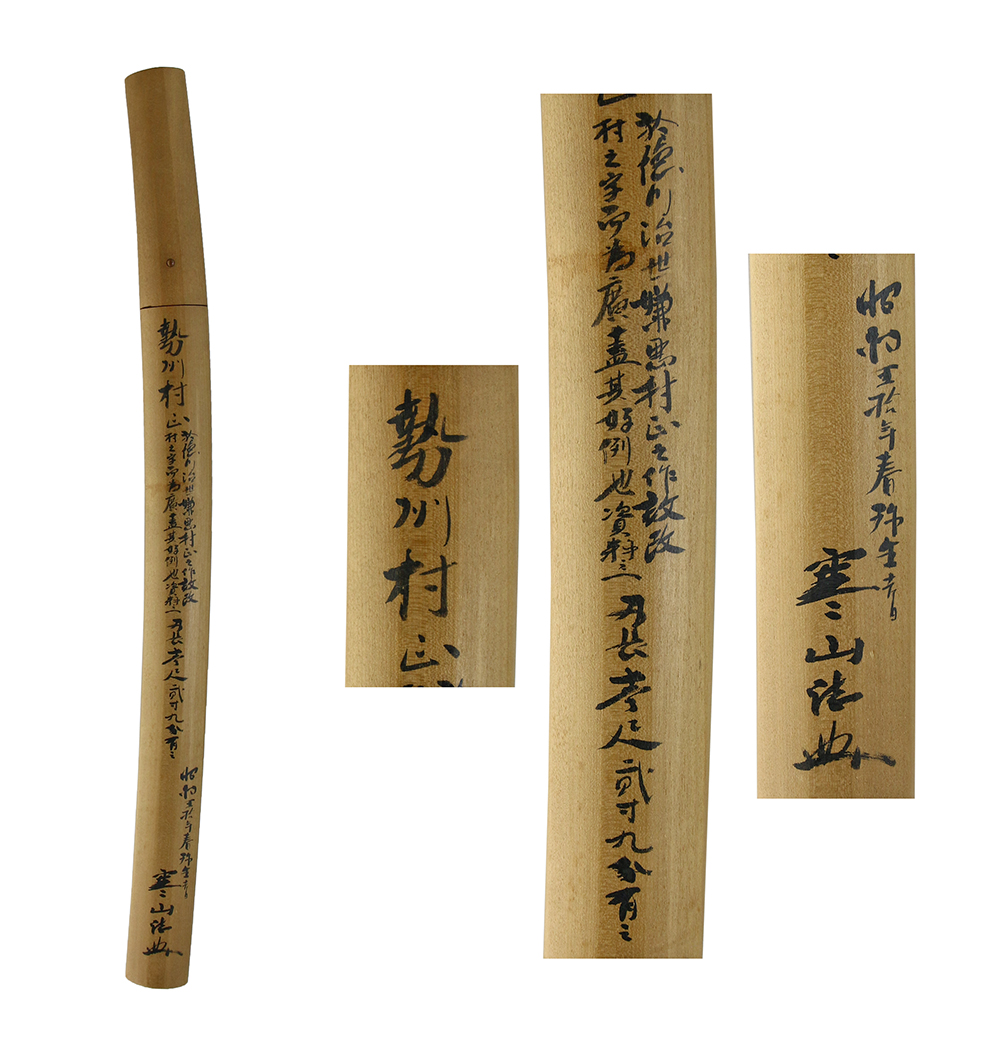 勢州村正
於徳川治世嫌悪村正之作故改
村之字而為廣盖其好例也資料之一
刃長壱尺弐寸九分有之
昭和五拾年春弥生吉日
寒山誌
勢州村正
於徳川治世嫌悪村正之作故改
村之字而為廣盖其好例也資料之一
刃長壱尺弐寸九分有之
昭和五拾年春弥生吉日
寒山誌